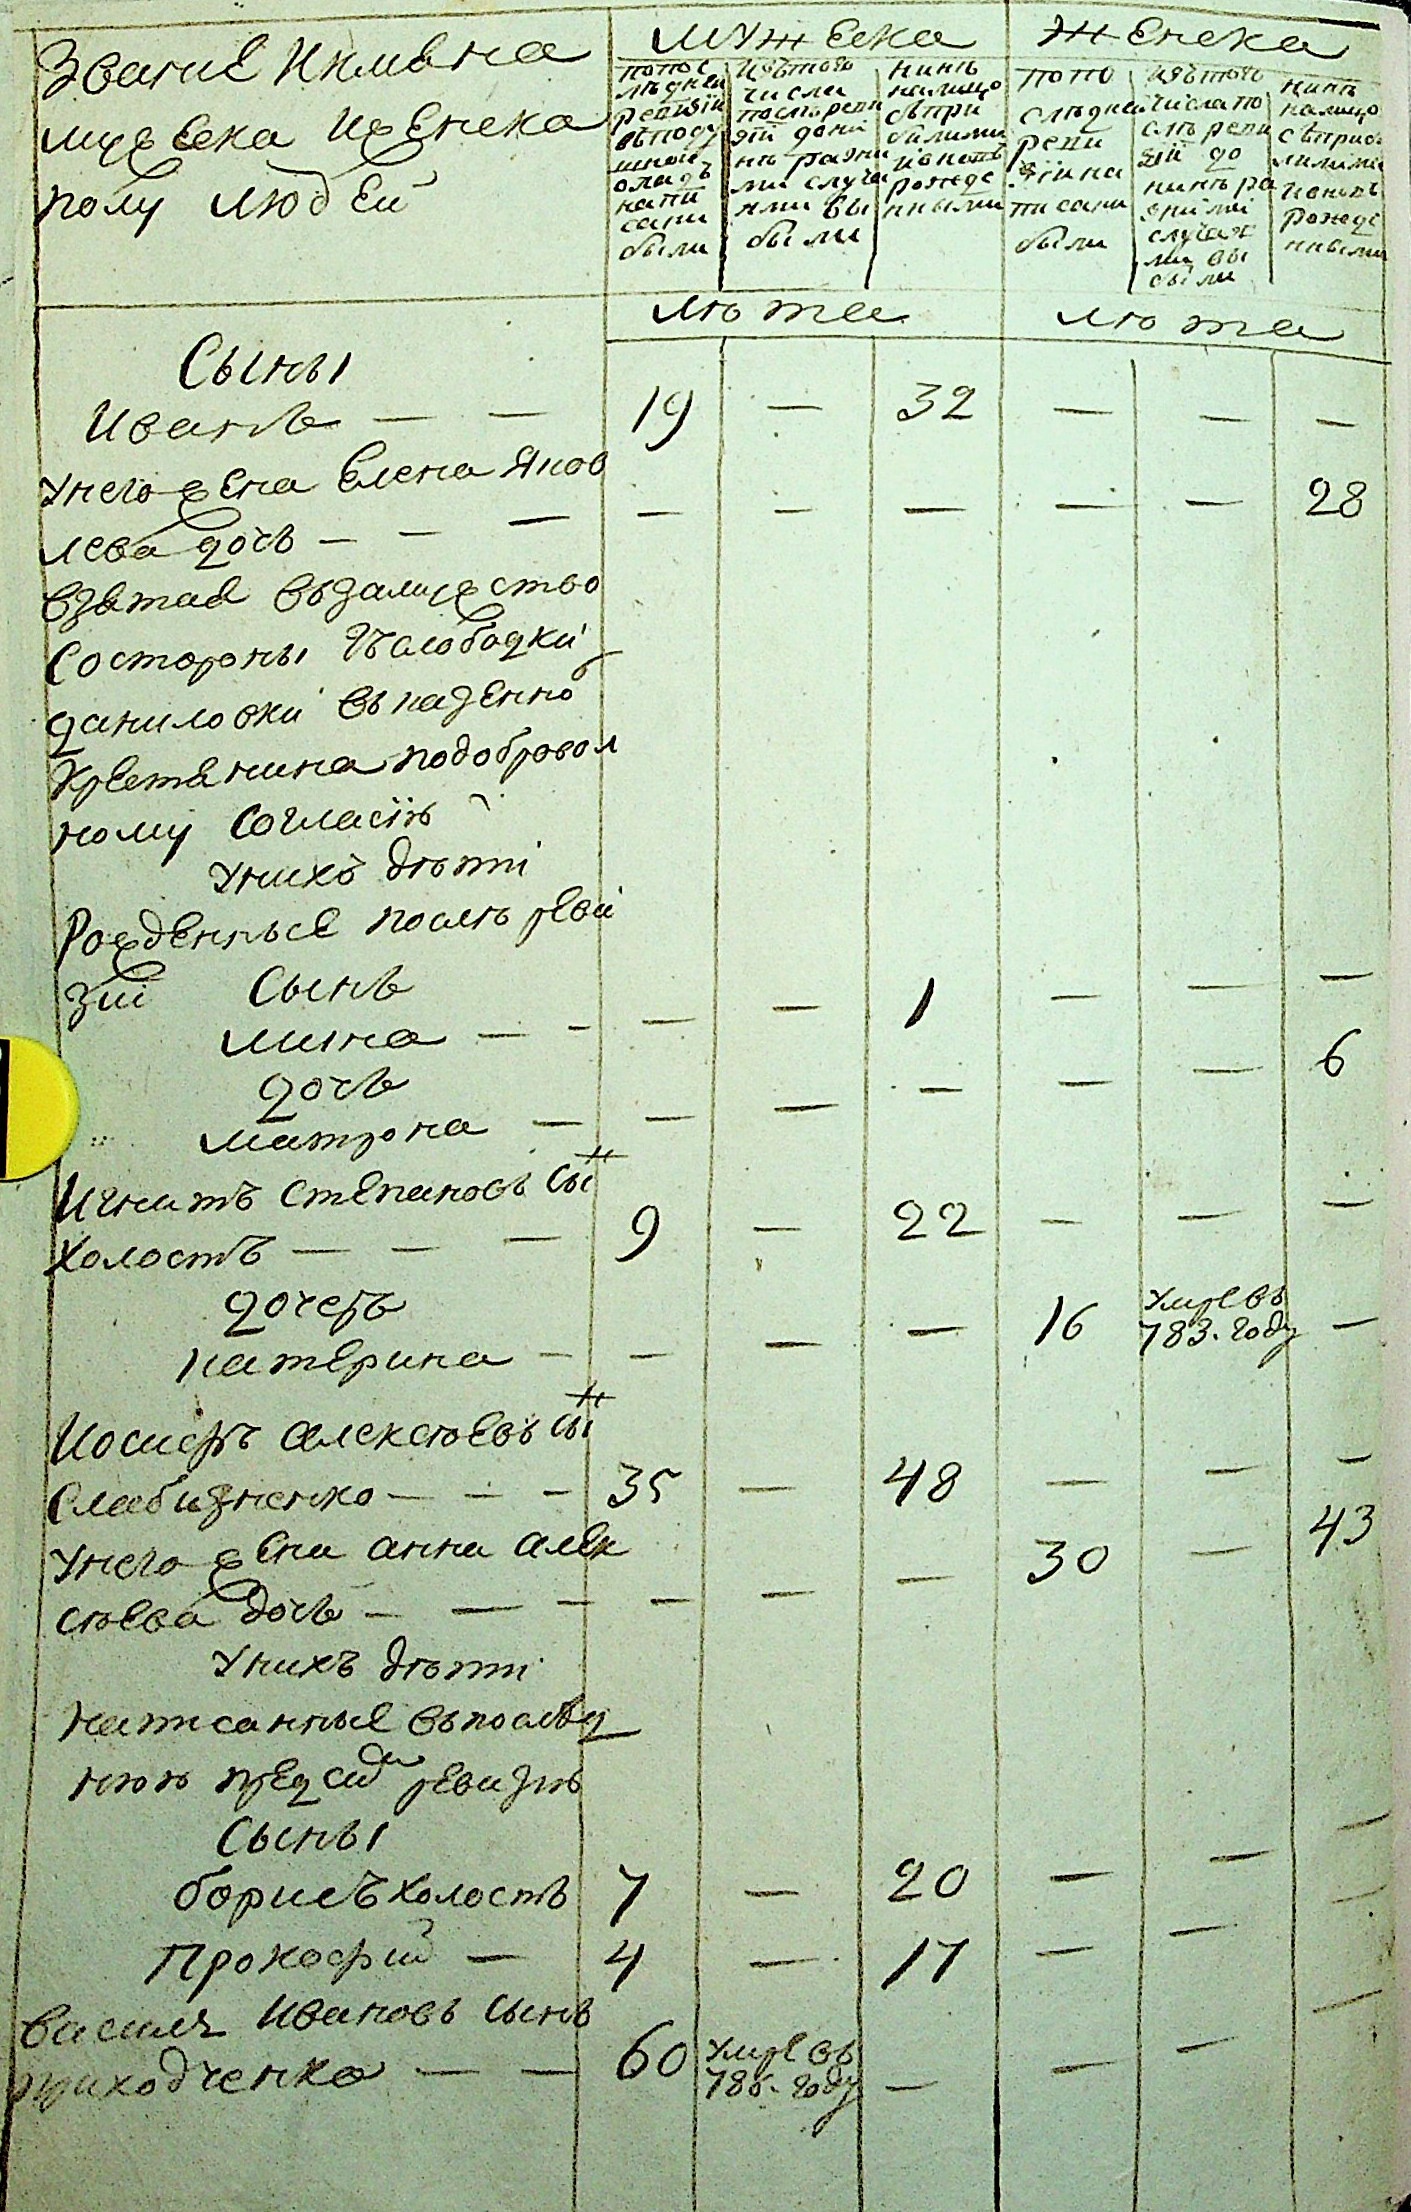 Звание Имяна
мужеска Иженска
полу людей
мужеска
женска
попос
лѣдней
ревизіи
вподу
шной
окладъ
напи
сани
были
Изътого
числа
послѣреви
зїи дони
нѣ разни
ми случа
ями вы
были
нинѣ
налицо
съпри
билими
ивновь
рожде
нными
попо
слѣдней
реви
зїи на
писани
были
Изътого
числа по
слѣ реви
зїи до
нинѣ ра
зними
случая
ми вы
были
нинѣ
налицо
съприб
лими
ивновь
рожде
нными
лѣта
лѣта
Сыны
Иванъ — — 19 — 32 — — —
Унего жена Елена Яков
лева дочь — — — — — — — — 28
взятая взамужство
Состороны
даниловки казенно
Крестянина подобровол
ному согласїю
Унихъ дѣти
Рожденные послѣ реви
зїи Сынъ
мина — — — — 1 — — —
дочь
матрона — — — — — — 6
Игнатъ Степановъ сын
холостъ — — — 9 — 22 — — —
дочеръ
катерина — — — — 16 Умре въ 783. году —
Иосифъ алексѣевъ сын
Слабизненко — — — 35 — 48 — — —
Унего жена анна алек
сѣева дочь — — — — — — 30 — 43
Унихъ дѣти
написанные впослѣд
нюю пред сим ревизию
Сыны
борисъ холостъ 7 — 20 — — —
Прокофий — 4 — 17 — — —
василя Ивановъ сынъ
приходченко — — 60 Умре въ 786. году — — — —